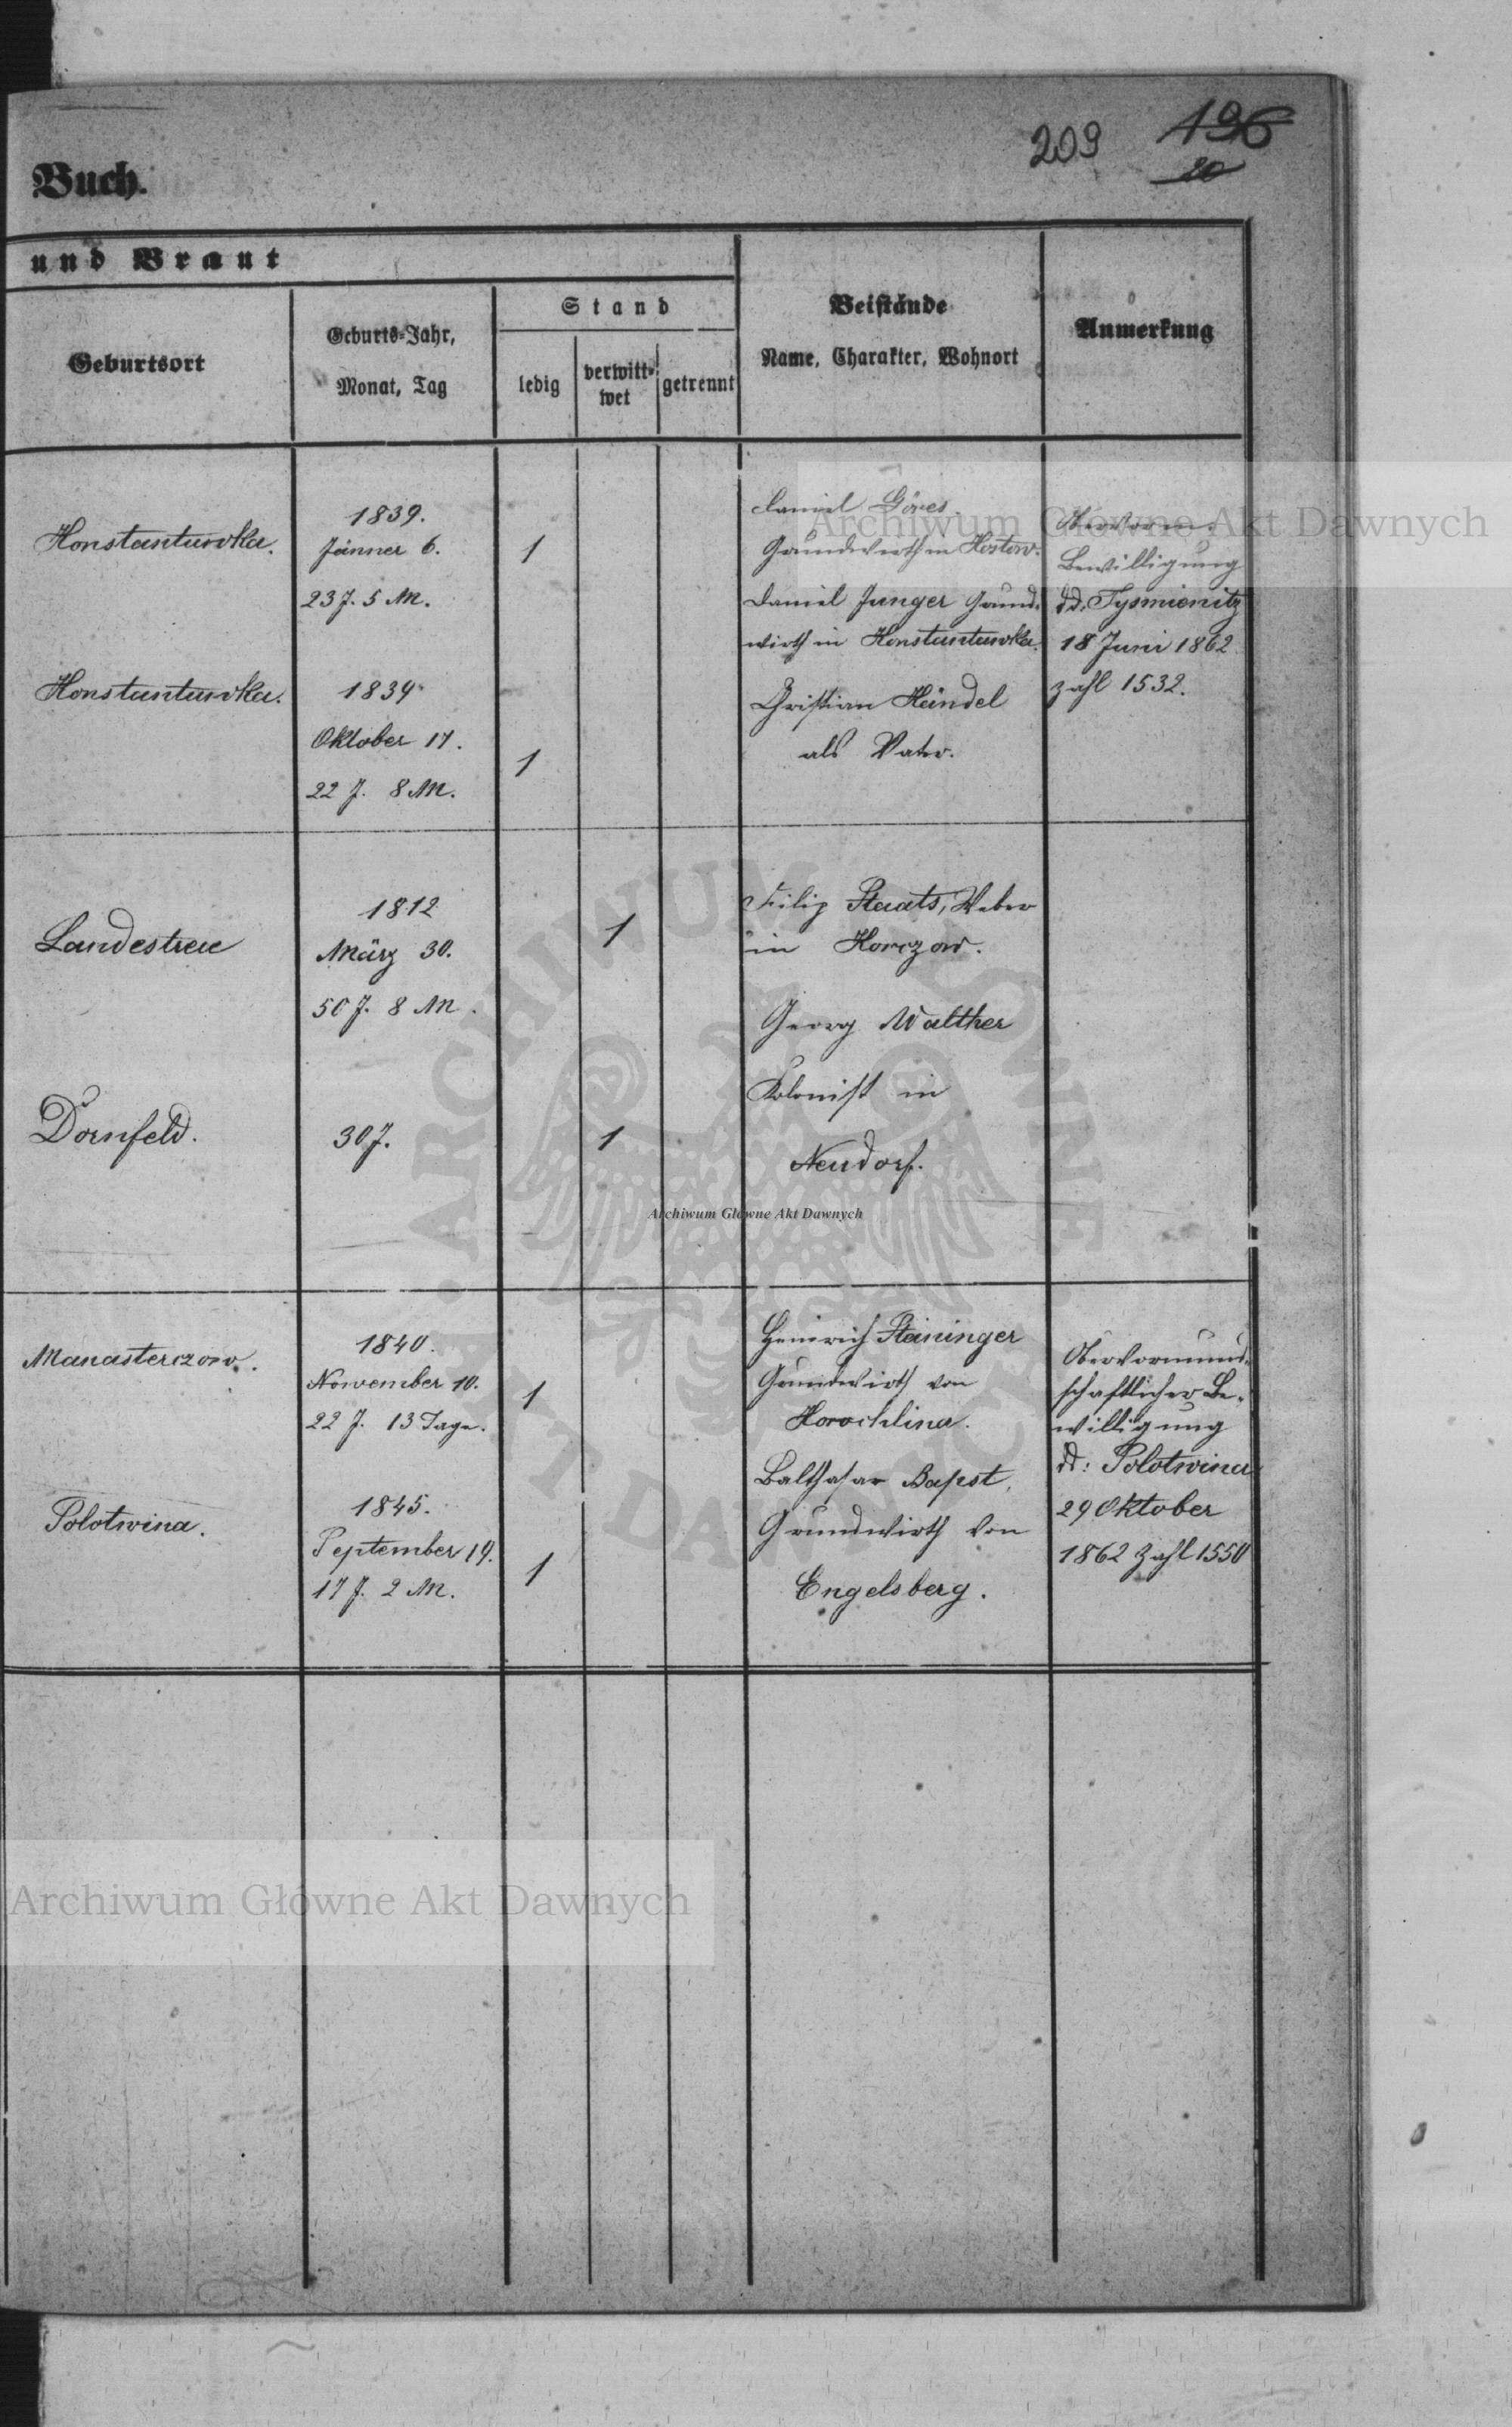 209 196
20
Buch.
und Braut
Geburtsort
Geburts=Jahr,
Monat, Tag
Stand
ledig
verwitt=
wet
getrennt
Beistände
Name, Charakter, Wohnort
Anmerkung
Konstantuwka.
1839.
Jänner 6.
23 J. 5 M.
1
Daniel Göres.
Grundwirth in Hostow.
Daniel Junger Grund=
wirth in Konstantuwka.
Obervorm.
Bewilligung
dd. Tysmienitz
18 Juni 1862
Zahl 1532.
Konstantuwka.
1839
Oktober 17.
22 J. 8 M.
1
Christian Heindel
als Vater.
Landestreu
1812
März 30.
50 J. 8 M.
1
Filip Staats, Weber
in Horczow.
Georg Walther
Kolonist in
Neudorf.
Dornfeld.
30 J.
1
Manasterczow.
1840.
November 10.
22 J. 13 Tage.
1
Heinrich Steininger
Grundwirth von
Horochlina.
Balthasar Bapst,
Grundwirth von
Engelsberg.
Obervormund=
schaftlicher Be=
willigung
dd: Solotwina
29 Oktober
1862 Zahl 1550
Solotwina.
1845.
September 19.
17 J. 2 M.
1
Archiwum Główne Akt Dawnych
Archiwum Główne Akt Dawnych
Archiwum Główne Akt Dawnych
ARCHIWUM GŁÓWNE AKT DAWNYCH